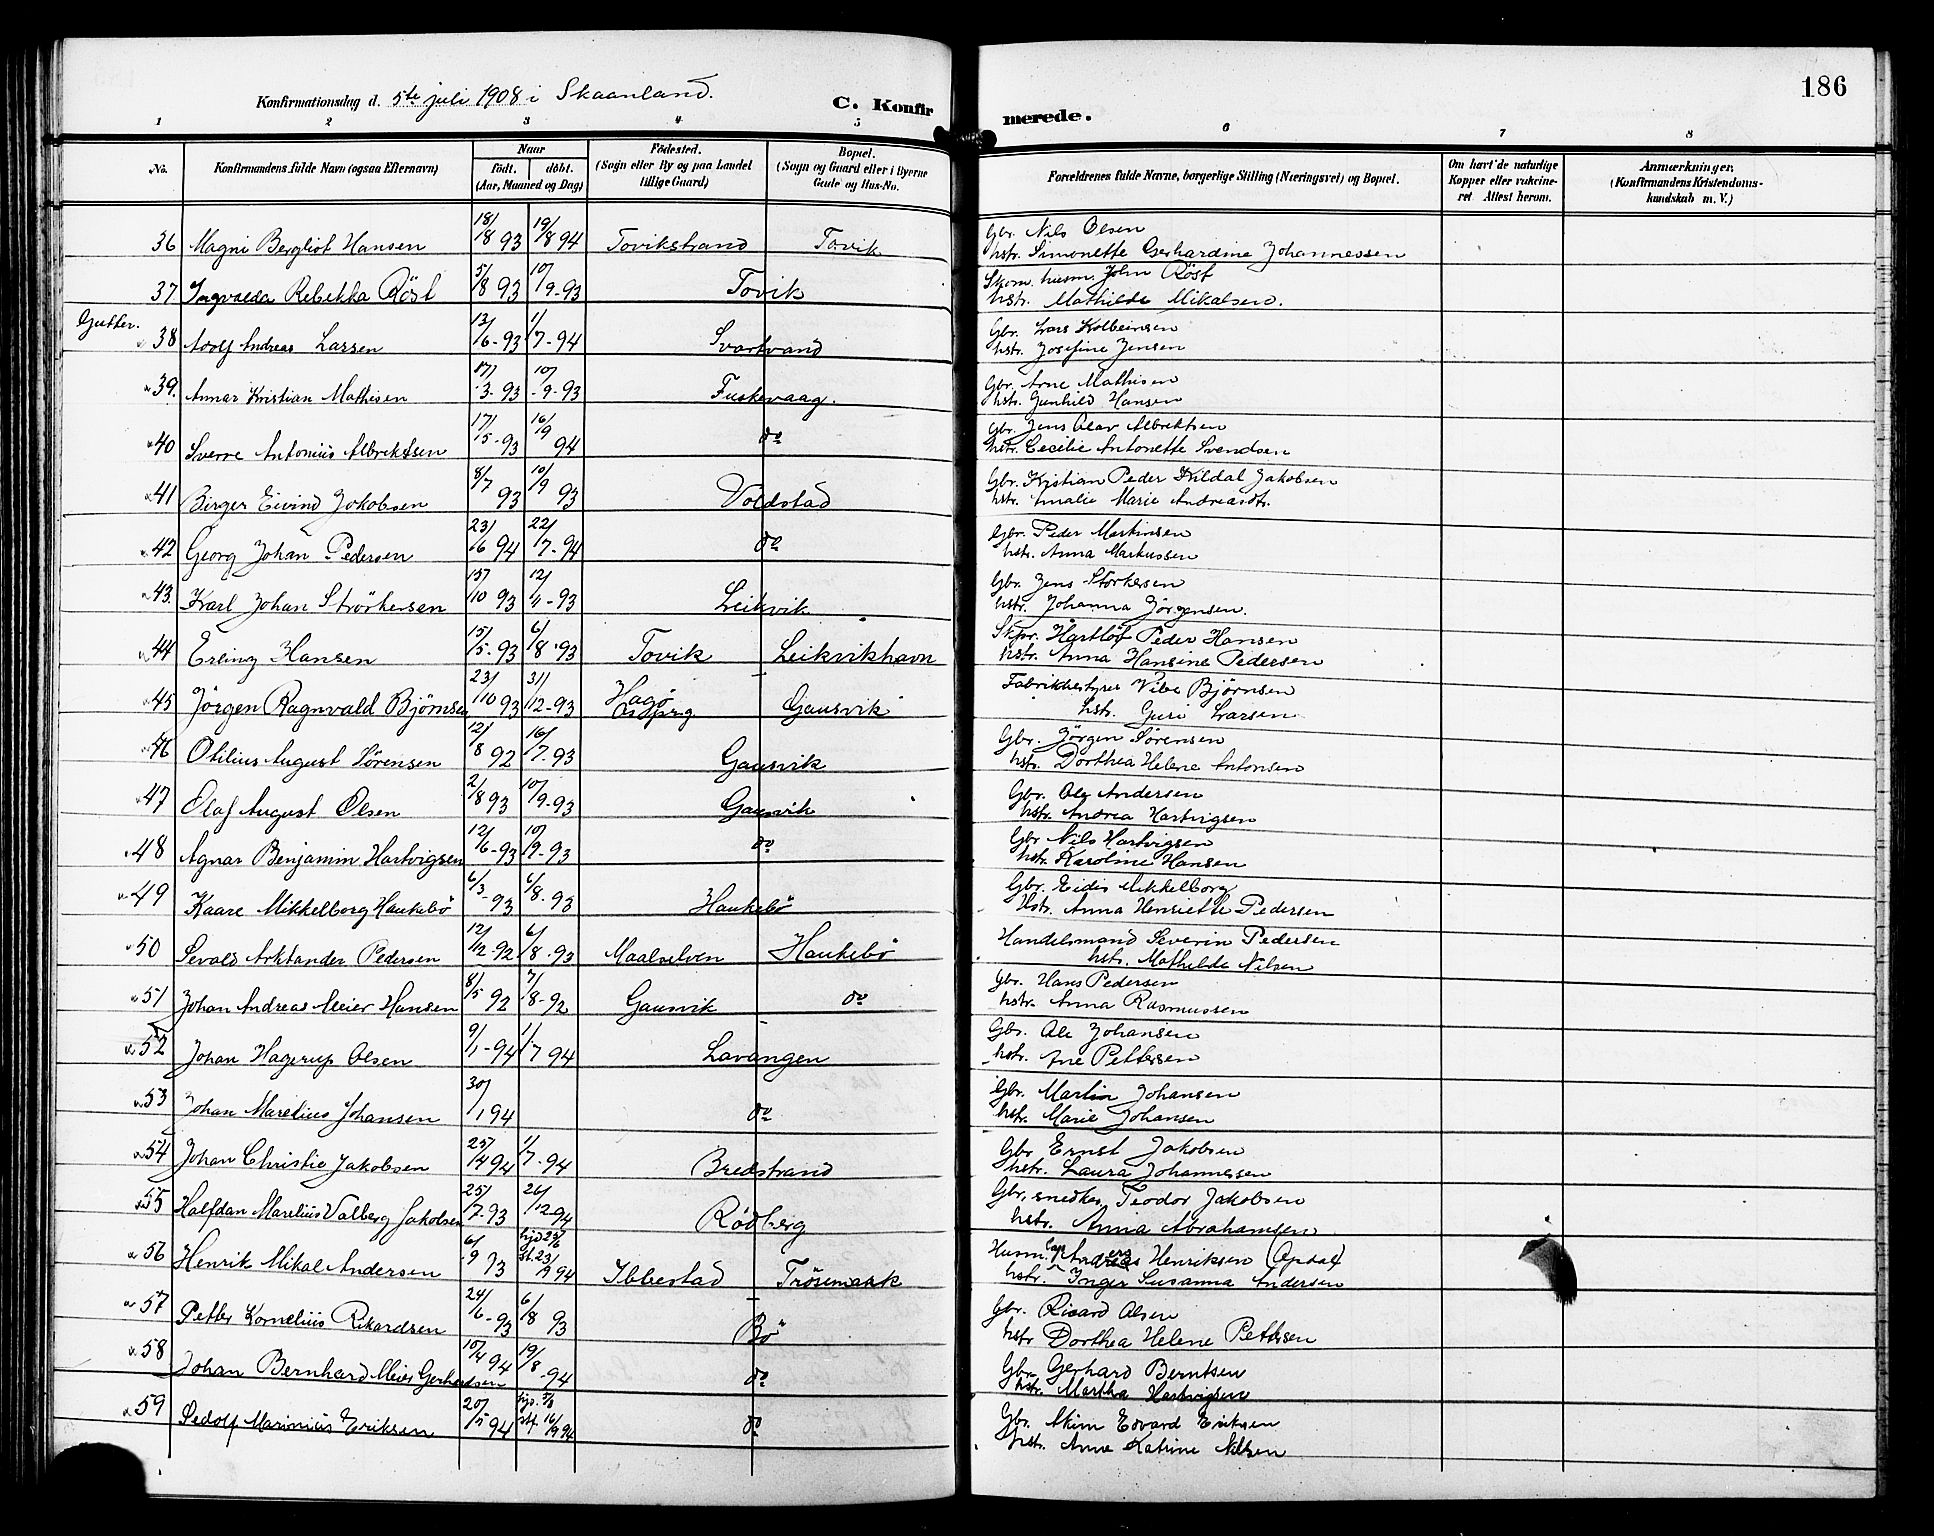 186
Konfirmationsdag d. 5te juli 1908 i Skaanland.
C. Konfirmerede.
1 2 3 4 5 6 7 8
No. Konfirmandens fulde Navn (ogsaa Efternavn) Naar født. døbt. (Aar, Maaned og Dag) Fødested. (Sogn eller By og paa Landet tillige Gaard) Bopæl. (Sogn og Gaard eller i Byerne Gade og Hus-No. Forældrenes fulde Navne, borgerlige Stilling (Næringsvei) og Bopæl. Om havt de naturlige Kopper eller vakcineret Attest herom. Anmærkninger. (Konfirmandens Kristendomskundskab m. V.)
36 Magni Bergliot Hansen 18/8 93 19/8 94 Tovikstrand Tovik Gbr. Nils Olsen
hstr. Simonette Gerhardine Johannessen
37 Ingvalda Rebekka Röst 5/8 93 10/9-93 Tovik Skom. husm. John Röst
hstr. Mathilde Mikalsen.
Gutter.
38 Adolf Andreas Larsen 13/6-93 1/7-94 Svartvand Gbr. Lars Kolbeinsen
hstr. Josefine Jensen
39. Annar Kristian Mathisen 17/3-93 10/9-93 Fuskevaag. Gbr. Arne Mathisen
hstr. Gunhild Hansen
40 Sverre Antonius Albriktsen 17/5-93 16/9 94 do Gbr. Jens Olav Albriktsen
hstr. Cecilie Antonette Svendsen
41 Birger Eivind Jakobsen 8/7 93 10/9 93 Voldstad Gbr. Kristian Peder Kildal Jakobsen
hstr. Amalie Marie Andreasdtr.
42 Georg Johan Pedersen 23/6 94 22/7-94 do Gbr. Peder Martinsen
hstr. Anna Markussen
43. Karl Johan Störkersen 15/10 93 12/11-93 Leikvik Gbr. Jens Störkersen
hstr. Johanna Jörgensen.
44 Erling Hansen 15/5-93 6/8-93 Tovik Leikvikhavn Skpr. Hartløf Peder Hansen
hstr. Anna Hansine Pedersen
45 Jörgen Ragnvald Bjørnsen 23/10 93 31/12-93 Hagø Gausvik Fabrikbestyrer Vibe Bjørnsen
hstr. Guri Larsen
46 Otilius August Sörensen 12/8 92 16/7-93 Gausvik Gbr. Jörgen Sörensen
hstr. Dorthea Helene Antonsen
47 Olaf August Olsen 2/8 93 10/9-93 Gausvik Gbr. Ole Andersen
hstr. Andrea Hartvigsen
48 Agnar Benjamin Hartvigsen 12/6-93 10/9-93 do Gbr. Nils Hartvigsen
hstr. Karoline Hansen
49 Kaare Mikkelborg Haukebö 6/3-93 6/8-93 Haukebö Gbr. Eidis Mikkelborg
Hstr. Anna Henriette Pedersen
50 Sevald Arktander Pedersen 12/12-92 6/8-93 Maalselven Haukebö Handelsmand Severin Pedersen
hstr. Mathilde Nilsen
51 Johan Andreas Meier Hansen 8/5 92 7/8-92 Gausvik do Gbr. Hans Pedersen
hstr. Anna Rasmussen
52 Johan Hagerup Olsen 9/1-94 1/7 94 Lavangen Gbr. Ole Johansen
hstr. Ane Pettersen
53 Johan Marelius Johansen 30/1 94 do Gbr. Martin Johansen
hstr. Marie Johansen
54 Johan Christie Jakobsen 25/4 94 1/7-94 Bredstrand Gbr Ernst Jakobsen
hstr. Laura Johannessen
55 Halfdan Marelius Valberg Jakobsen 25/7-93 26/12-94 Rödberg Gbr, snedker Teodor Jakobsen
hstr. Anna Abrahamsen
56 Henrik Mikal Andersen 6/9 93 hjd 23/6 st. 23/9 94 Ibbestad Trösemark Husm. Lap Anders Henriksen (Opdal)
hstr. Inger Susanna Andersen
57 Petter Kornelius Rikardsen 24/6-93 6/8 93 Bö Gbr. Ricard Olsen
hstr Dorthea Helene Pettersen
58 Johan Bernhard Meier Gerhardsen 10/4 94 19/8-94 do Gbr. Gerhard Berntsen
hstr. Martha Hartvigsen
59 Sedolf Marinius Eriksen 20/5 94 hjd. stf. 16/9 94 do Gbr. Akim Edvard Eriksen
hstr. Anne Katrine Nilsen